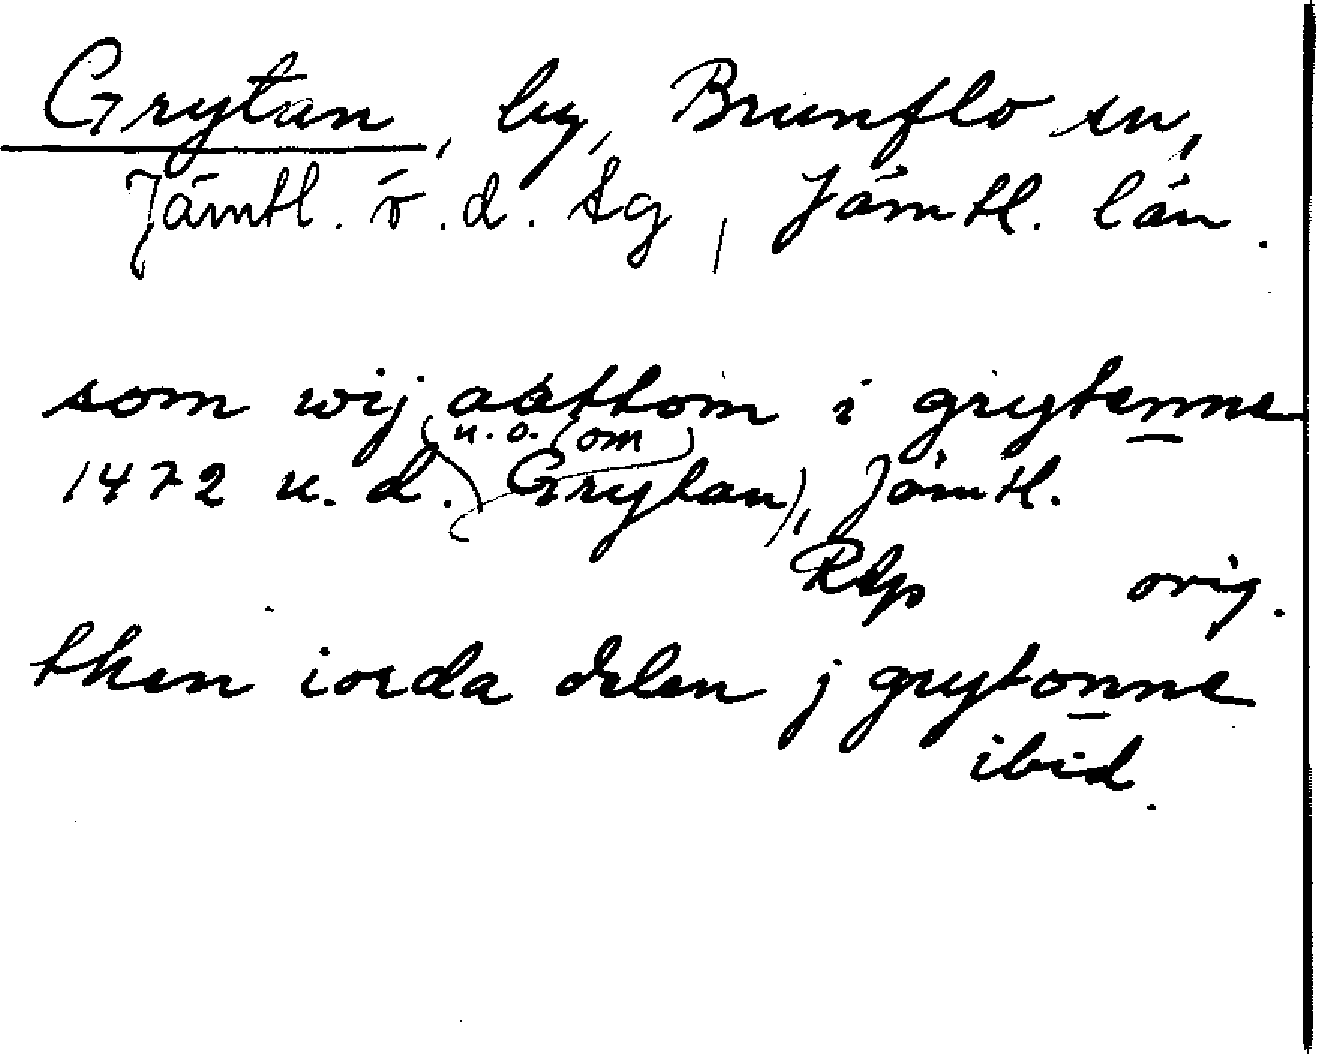 Grytan, by, Brunflo sn,
Jämtl. ö. d. tg, Jämtl. län.
som wij aattom i grytenne
(u. o. (om
1472 u. d. Grytan), Jämtl.
Rbp orig.
then iorda delen j grytonne
ibid.